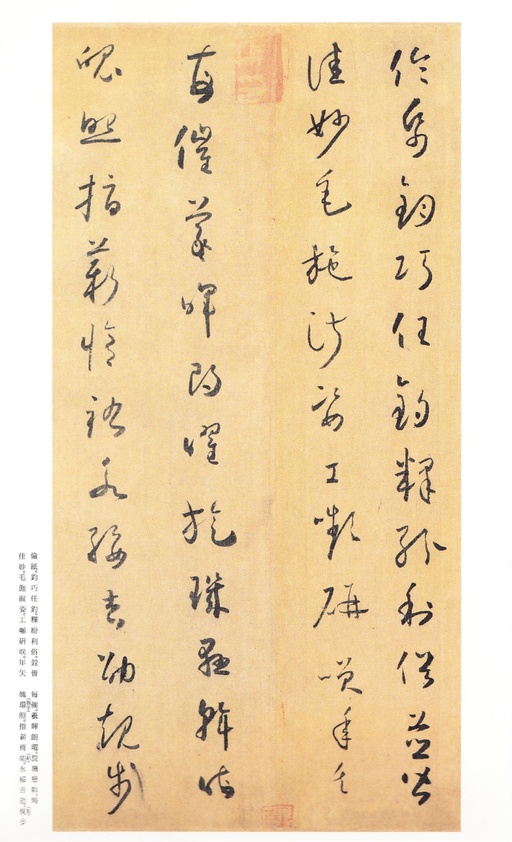 倫紙鈞巧任釣釋紛利俗並皆
佳妙毛施淑姿工嚬研咲年矢
每催羲暉朗曜旋璣懸斡晦
魄照指薪脩祜永綏吉劭規步
倫紙。鈞巧任釣。釋紛利俗。竝皆
佳妙。毛施淑姿。工嚬研咲。年矢
每催。羲暉朗曜。璣懸斡。晦
魄環照。指薪。永綏吉劭。步